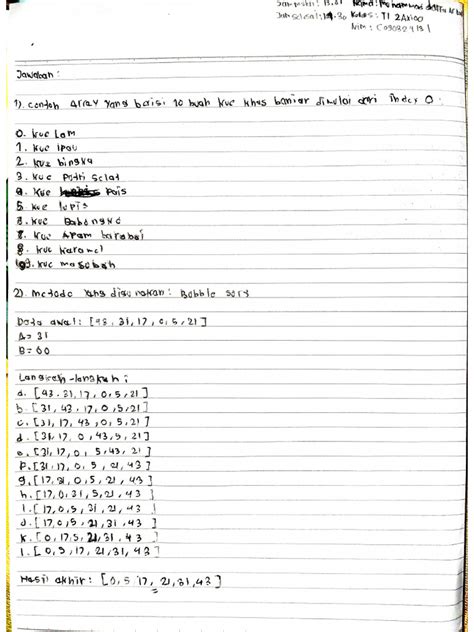 Jam selesai: 14.30 Kelas: TI 2A
Jawaban:
1) contoh Array yang berisi 10 buah kue khas banjar dimulai dari index 0.
0. kue lam
1. kue Ipau
2. kue bingka
3. kue Putri selat
4. kue Pais
5 kue lupis
kue
7. kue Apam barabai
8. kue karamel
9. kue
2) metode yang digunakan: Bobble sory
Data awal: [98, 31, 17, 0, 5, 21]
A= 31
B= 60
Langkah-langkah:
a. [43. 31, 17, 0, 5, 21]
b. [31, 43, 17, 0, 5, 21]
c. [31, 17, 43, 0, 5, 21]
d. [31, 17, 0, 43, 5, 21]
e. [31, 17, 0, 5, 43, 21]
F. [31, 17, 0, 5, 21, 43]
g. [17, 31, 0, 5, 21, 43]
h. [17, 0, 31, 5, 21, 43]
I. [17, 0, 5, 31, 21, 43]
J. [17, 0, 5, 21, 31, 43]
k. [0, 17, 5, 21, 31, 43]
l. [0, 5, 17, 21, 31, 43]
Hasil akhir: [0, 5, 17, 21, 31, 43]